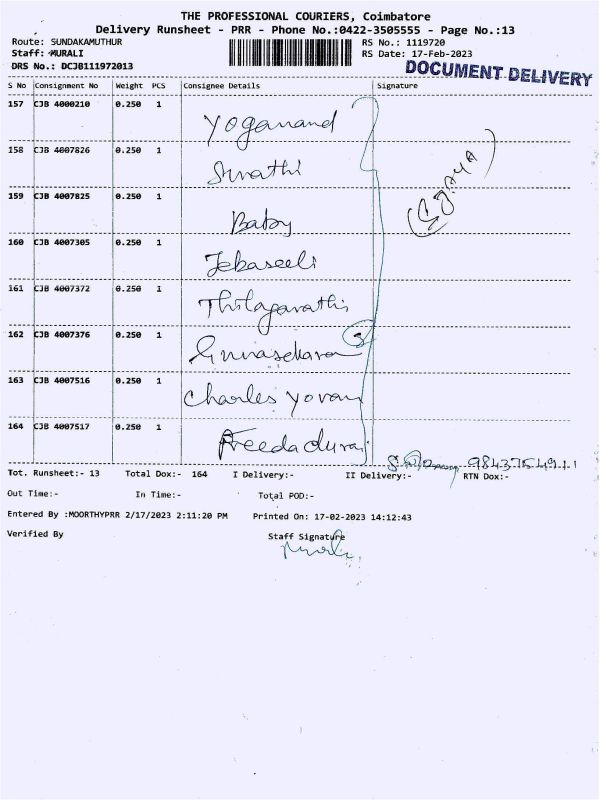 THE PROFESSIONAL COURIERS, Coimbatore
Delivery Runsheet - PRR - Phone No.:0422-3505555 - Page No.:13
Route: SUNDAKAMUTHUR
RS No.: 1119720
Staff: MURALI
RS Date: 17-Feb-2023
DRS No.: DCJB111972013
DOCUMENT DELIVERY
S No Consignment No Weight PCS Consignee Details Signature
157 CJB 4000210 0.250 1 Yoganand
158 CJB 4007826 0.250 1
159 CJB 4007825 0.250 1 Baby
160 CJB 4007305 0.250 1 Jebaseeli
161 CJB 4007372 0.250 1 Thilagavathi
162 CJB 4007376 0.250 1
163 CJB 4007516 0.250 1 Charles
164 CJB 4007517 0.250 1 Freeda durai
9843754911
Tot. Runsheet:- 13 Total Dox:- 164 I Delivery:- II Delivery:- RTN Dox:-
Out Time:- In Time:- Total POD:-
Entered By :MOORTHYPRR 2/17/2023 2:11:20 PM Printed On: 17-02-2023 14:12:43
Verified By Staff Signature
Murali